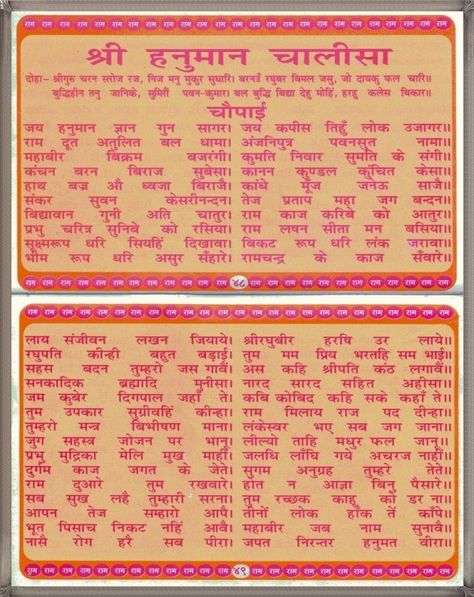 श्री हनुमान चालीसा
दोहा- श्रीगुरु चरन सरोज रज, निज मनु मुकुर सुधारि। बरनउँ रघुबर बिमल जसु, जो दायकु फल चारि।।
बुद्धिहीन तनु जानिके, सुमिरौं पवन-कुमार। बल बुद्धि बिद्या देहु मोहिं, हरहु कलेस बिकार।।
चौपाई
जय हनुमान ज्ञान गुन सागर। जय कपीस तिहुँ लोक उजागर।।
राम दूत अतुलित बल धामा। अंजनिपुत्र पवनसुत नामा।।
महाबीर बिक्रम बजरंगी। कुमति निवार सुमति के संगी।।
कंचन बरन बिराज सुबेसा। कानन कुण्डल कुंचित केसा।।
हाथ बज्र औ ध्वजा बिराजै। काँधे मूँज जनेऊ साजै।।
संकर सुवन केसरीनन्दन। तेज प्रताप महा जग बन्दन।।
बिद्यावान गुनी अति चातुर। राम काज करिबे को आतुर।।
प्रभु चरित्र सुनिबे को रसिया। राम लषन सीता मन बसिया।।
सूक्ष्मरूप धरि सियहिं दिखावा। बिकट रूप धरि लंक जरावा।।
भीम रूप धरि असुर सँहारे। रामचन्द्र के काज सँवारे।।
४८
लाय संजीवन लखन जियाये। श्रीरघुबीर हरषि उर लाये।।
रघुपति कीन्ही बहुत बड़ाई। तुम मम प्रिय भरतहि सम भाई।।
सहस बदन तुम्हरो जस गावैं। अस कहि श्रीपति कंठ लगावैं।।
सनकादिक ब्रह्मादि मुनीसा। नारद सारद सहित अहीसा।।
जम कुबेर दिगपाल जहाँ ते। कबि कोबिद कहि सके कहाँ ते।।
तुम उपकार सुग्रीवहिं कीन्हा। राम मिलाय राज पद दीन्हा।।
तुम्हरो मन्त्र बिभीषण माना। लंकेस्वर भए सब जग जाना।।
जुग सहस्त्र जोजन पर भानू। लील्यो ताहि मधुर फल जानू।।
प्रभु मुद्रिका मेलि मुख माहीं। जलधि लाँघि गये अचरज नाहीं।।
दुर्गम काज जगत के जेते। सुगम अनुग्रह तुम्हरे तेते।।
राम दुआरे तुम रखवारे। होत न आज्ञा बिनु पैसारे।।
सब सुख लहै तुम्हारी सरना। तुम रच्छक काहू को डर ना।।
आपन तेज सम्हारो आपै। तीनों लोक हाँक तें काँपे।।
भूत पिसाच निकट नहिं आवै। महाबीर जब नाम सुनावै।।
नासै रोग हरै सब पीरा। जपत निरन्तर हनुमत बीरा।।
४९